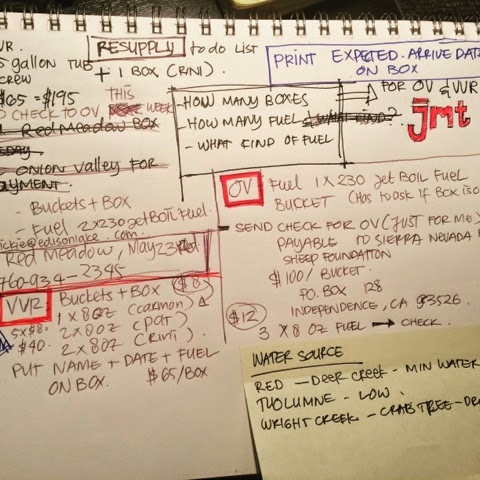 VVR.
5 gallon TUB
CREW
$65 = $195
SEND CHECK TO OV THIS WEEK
Red Meadow BOX
ONION VALLEY FOR
PAYMENT.
- Buckets + BOX
- Fuel 2x230 jetBoil Fuel.
ickie@edisonlake.com
Red Meadow, May 23rd
760-934-2345
RESUPPLY to do list
+ 1 BOX (RINI).
PRINT EXPECTED ARRIVE DATE
ON BOX
- HOW MANY BOXES
- HOW MANY FUEL
- WHAT KIND OF FUEL
FOR OV & VVR
jmt
VVR Buckets + BOX $8
1 x 8oz (carmon)
5x$8= 2 x 8oz (POT)
$40. 2 x 8oz (RINI).
PUT NAME + DATE + FUEL
ON BOX. $65/BOX
OV Fuel 1x230 jet BOIL FUEL
BUCKET (HAS TO ASK IF BOX IS O
- SEND CHECK FOR OV (JUST FOR ME)
PAYABLE TO SIERRA NEVADA
SHEEP FOUNDATION
$100/BUCKET.
P.O. BOX 128
INDEPENDENCE, CA 93526.
$12
3 x 8 oz FUEL → CHECK.
WATER SOURCE
RED - DEER CREEK - MIN WATER
TUOLUMNE - LOW.
WRIGHT CREEK. - CRABTREE - DR